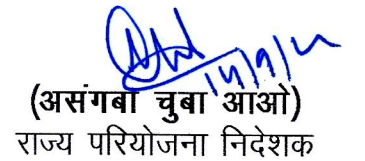 14/9/22
(असंगबा चुबा आओ)
राज्य परियोजना निदेशक